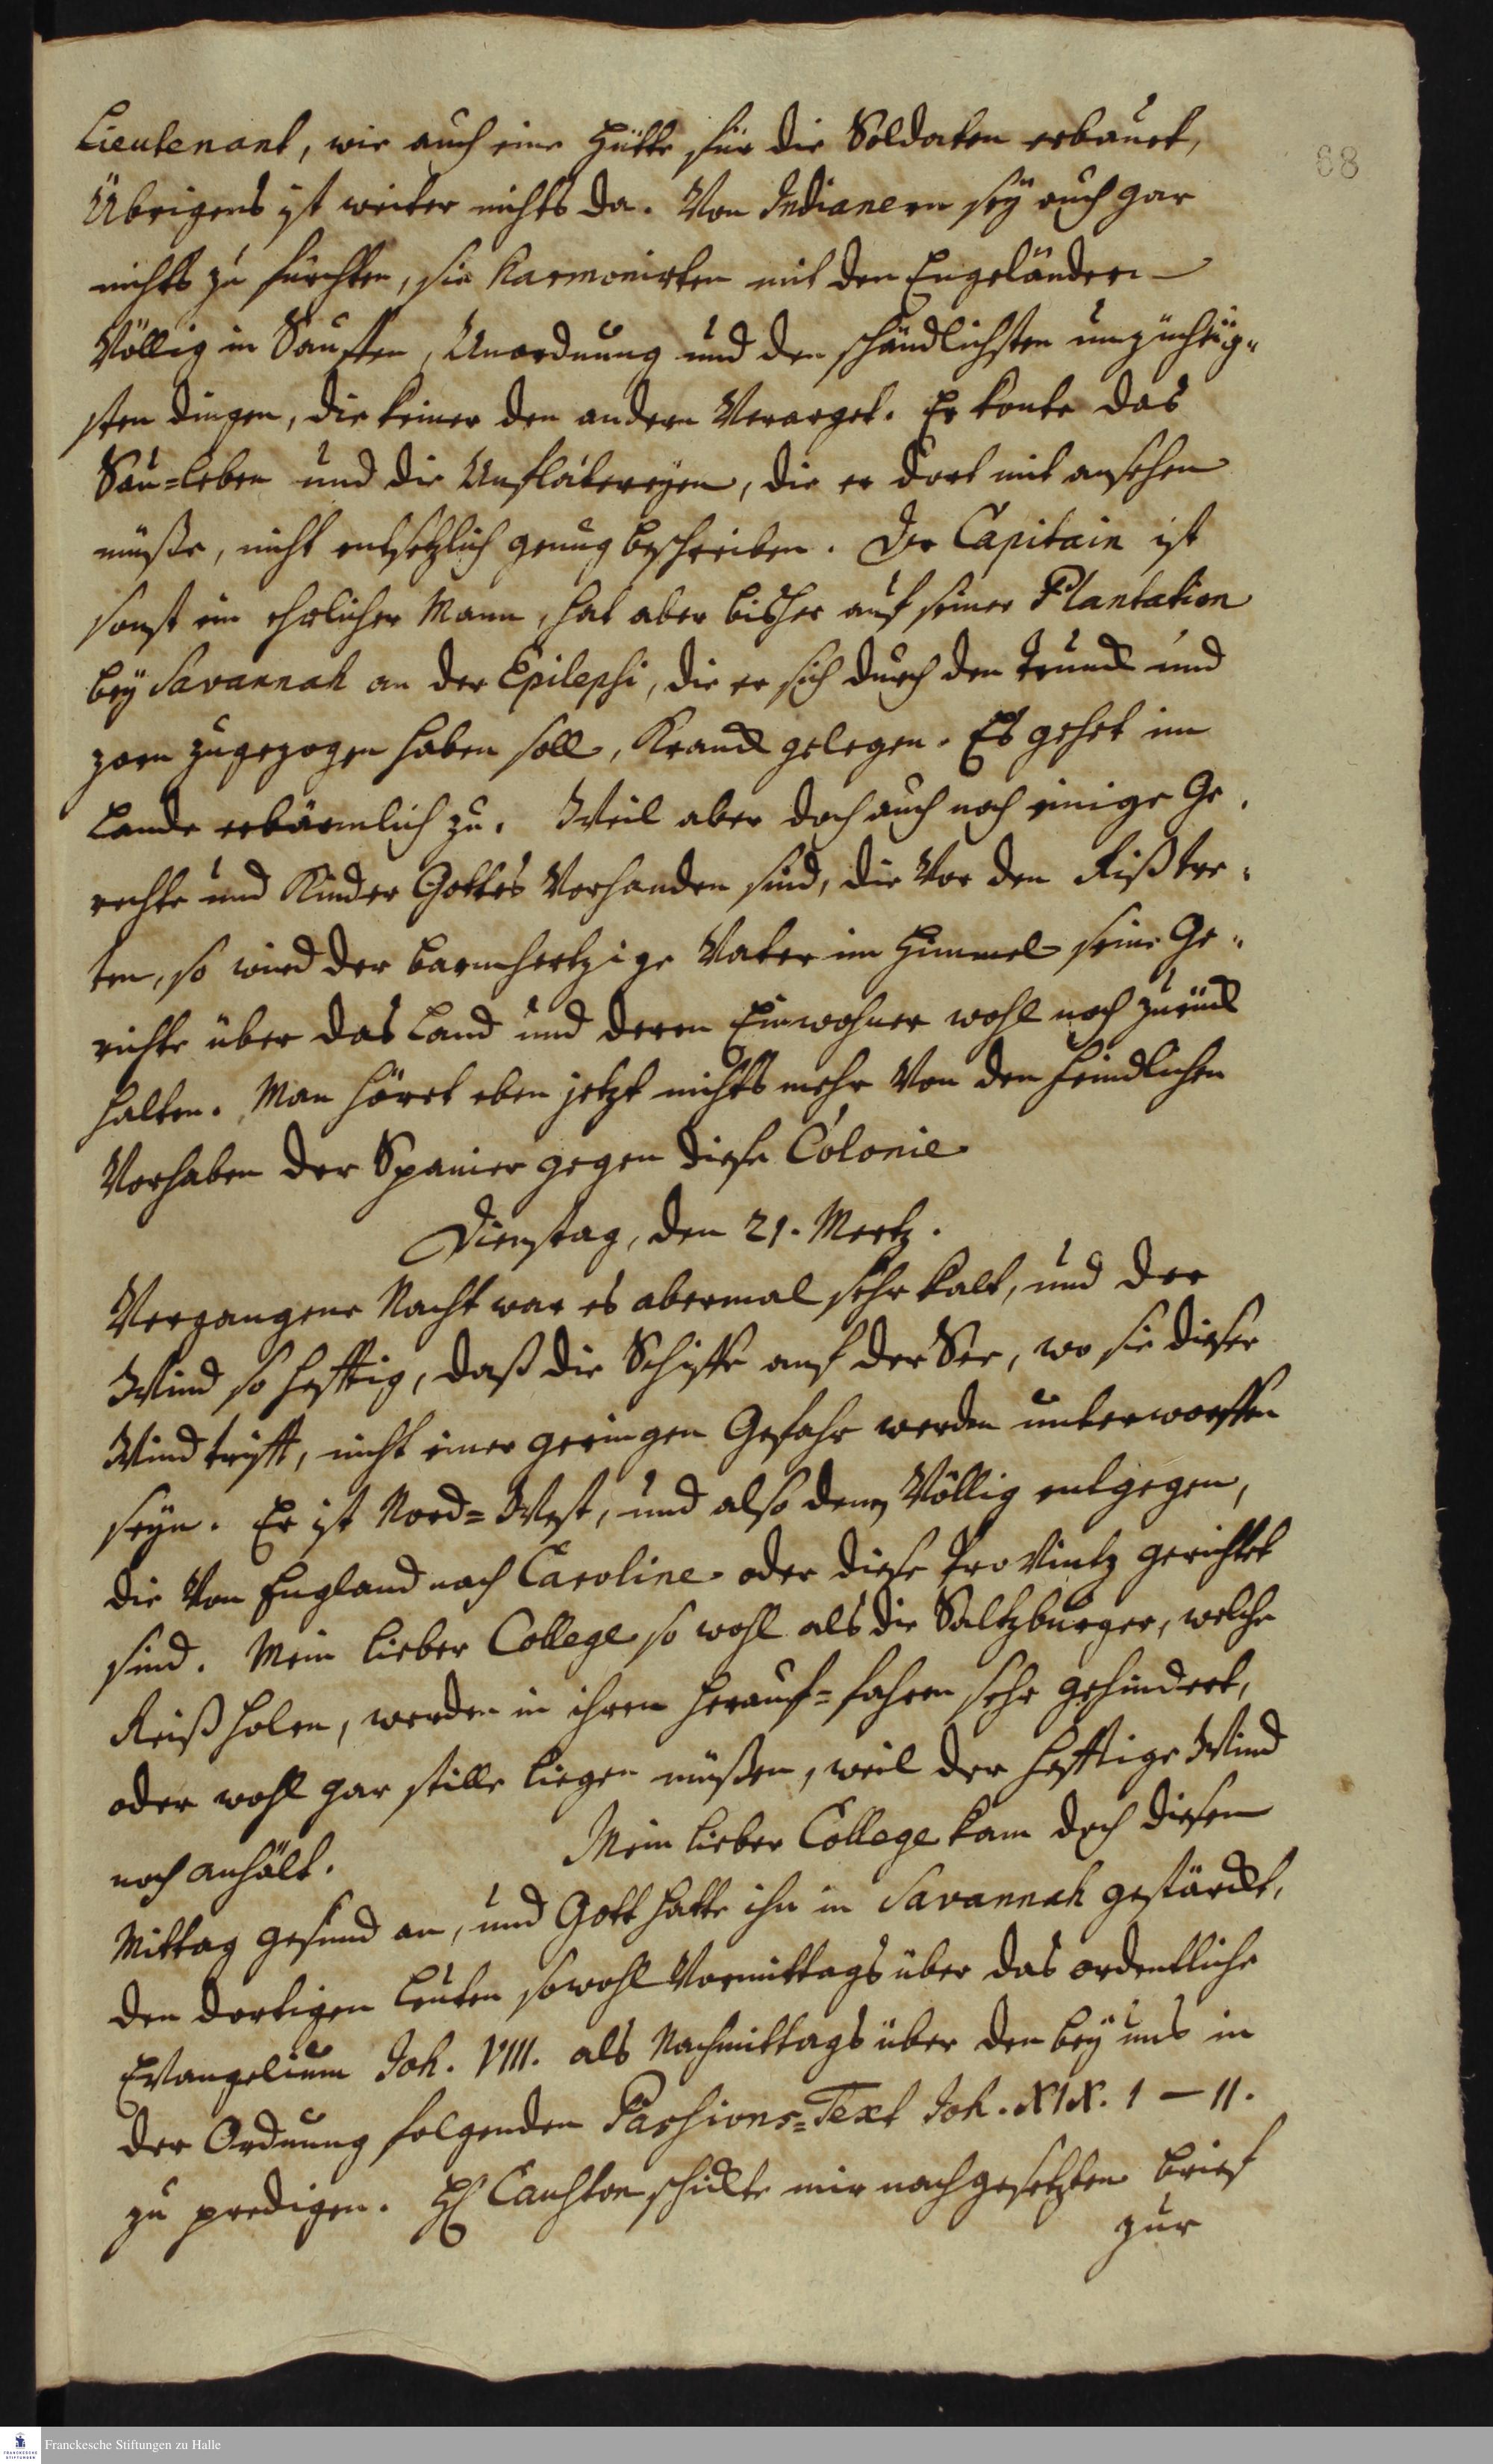 68
Lieutenant, wie auch eine Hütte für die Soldaten erbauet,
Übrigens ist weiter nichts da. Von Indianern sey auch gar
nichts zu fürchten, sie harmonirten mit den Engeländern
völlig in Sauffen, Unordnung und den schändlichsten unzüchtig-
sten dingen, die keiner den andern Verarget. Er konte das
Sau=Leben und die Unflätereyen, die er dort mit ansehen
müsse, nicht entsetzlich genug beschreiben. Der Capitain ist
sonst ein ehrlicher Mann, hat aber bisher auf seiner Plantation
bey Savannah an der Epilepsi, die er sich durch den Trunck und
zorn zugezogen haben soll, Kranck gelegen. Es gehet im
Lande erbärmlich zu. Weil aber doch auch noch einige Ge-
rechte und Kinder Gottes Vorhanden sind, die Vor den Riß tre-
ten, so wird der barmhertzige Vater im Himmel seine Ge-
richte über das Land und deren Einwohner wohl noch zurück
halten. Man höret eben jetzt nichts mehr Von den feindlichen
Vorhaben der Spanier gegen diese Colonie.
Dienstag, den 21. Mertz.
Vergangene Nacht war es abermal sehr kalt, und der
Wind so hefftig, daß die Schiffe auf der See, wo sie dieser
Wind trifft, nicht einer geringen Gefahr werden unterworffen
seyn. Er ist Nord=West, und also denen Völlig entgegen,
die Von England nach Caroline oder diese Provintz gerichtet
sind. Mein lieber College so wohl als die Saltzburger, welche
Reiß holen, werden in ihren herauf=fahren sehr gehindert,
oder wohl gar stille liegen müßen, weil der hefftige Wind
noch anhält. Mein lieber College kam doch diesen
Mittag gesund an, und Gott hatte ihn in Savannah gestärckt,
den dortigen Leuten sowohl Vormittags über das ordentliche
Evangelium Joh. VIII. als Nachmittags über den bey uns in
der Ordnung folgenden Passions=Text Joh. XIX. 1 – 11.
zu predigen. H. Causton schickte mir nachgesetzten brief
zur
Franckesche Stiftungen zu Halle